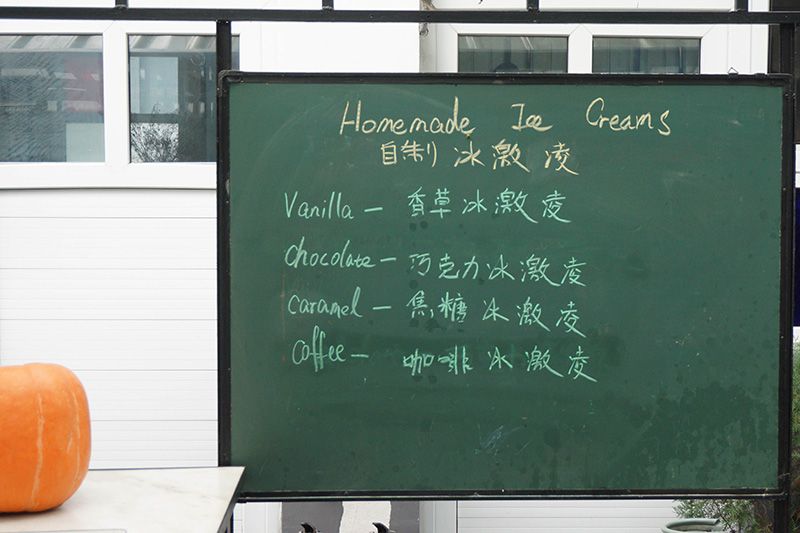 Homemade Ice Creams
自制 冰激凌
Vanilla — 香草冰激凌
chocolate — 巧克力冰激凌
caramel — 焦糖冰激凌
coffee — 咖啡冰激凌